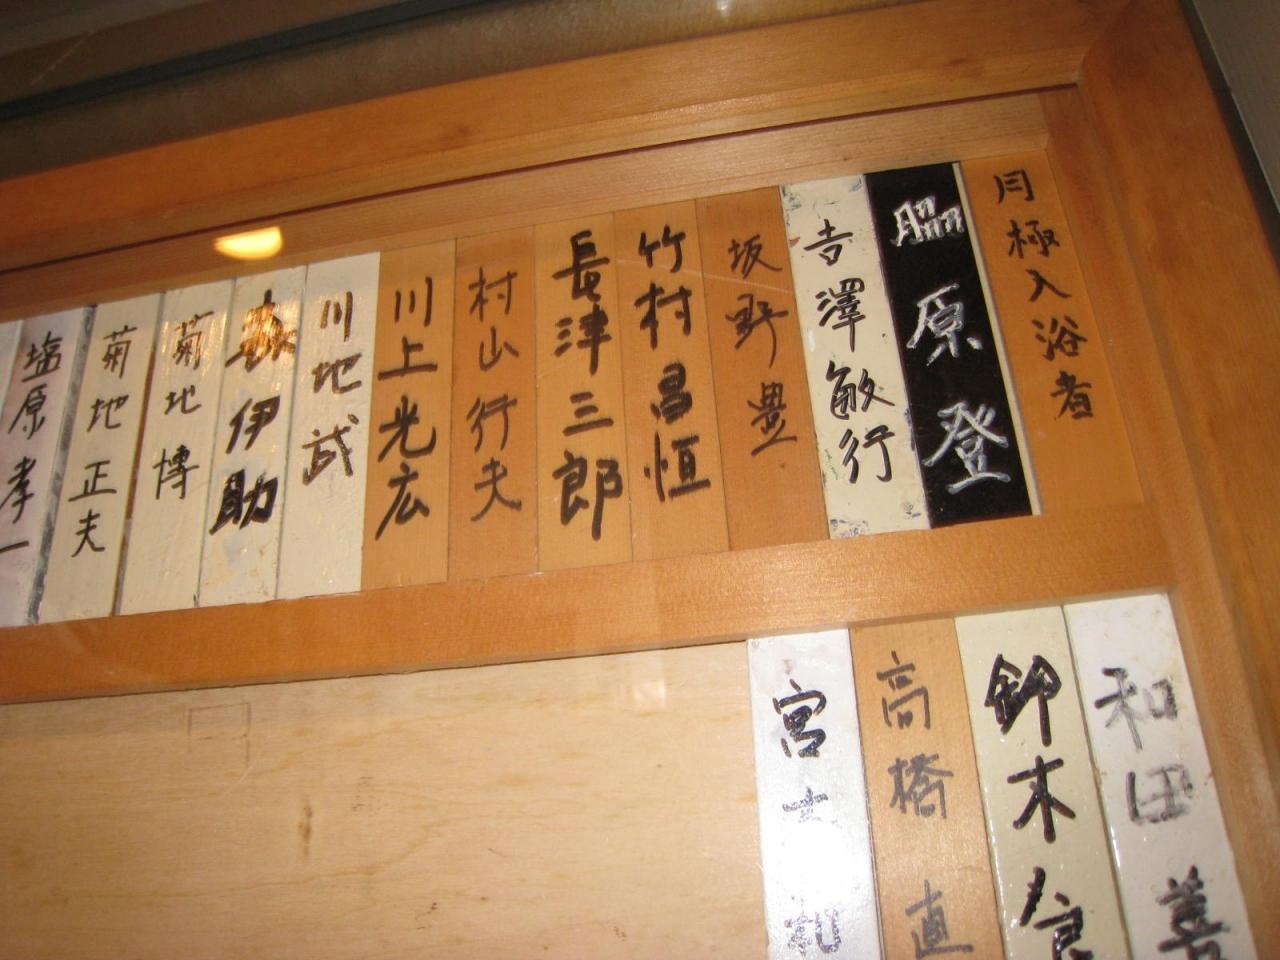 月極入浴者
脇原登
吉澤敏行
坂野豊
竹村昌恒
長津三郎
村山行夫
川上光広
川地武
伊助
菊地博
菊地正夫
塩原孝一
和田善
鈴木
高橋直
宮